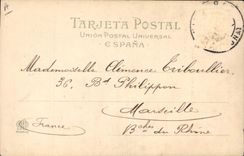 TARJETA POSTAL
UNIÓN POSTAL UNIVERSAL
ESPAÑA
Mademoiselle Clémence Triboullier
36, Bd Philippon
Marseille
(France) Bches du Rhône